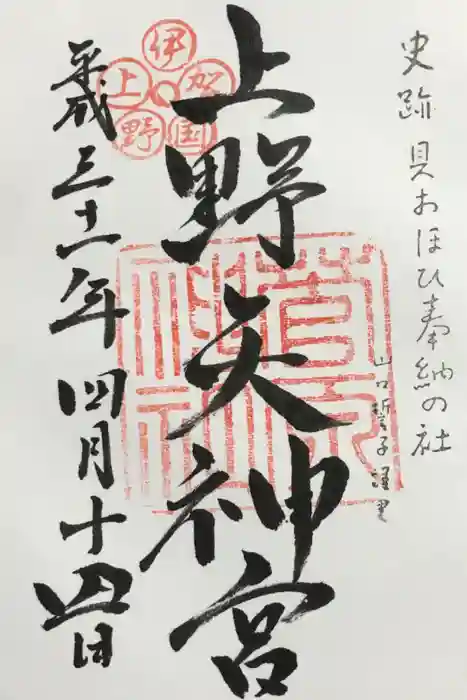 史跡 貝おほひ奉納の社
山口誓子謹書
上野天神宮
平成三十一年四月十四日
伊賀国上野
菅原神社